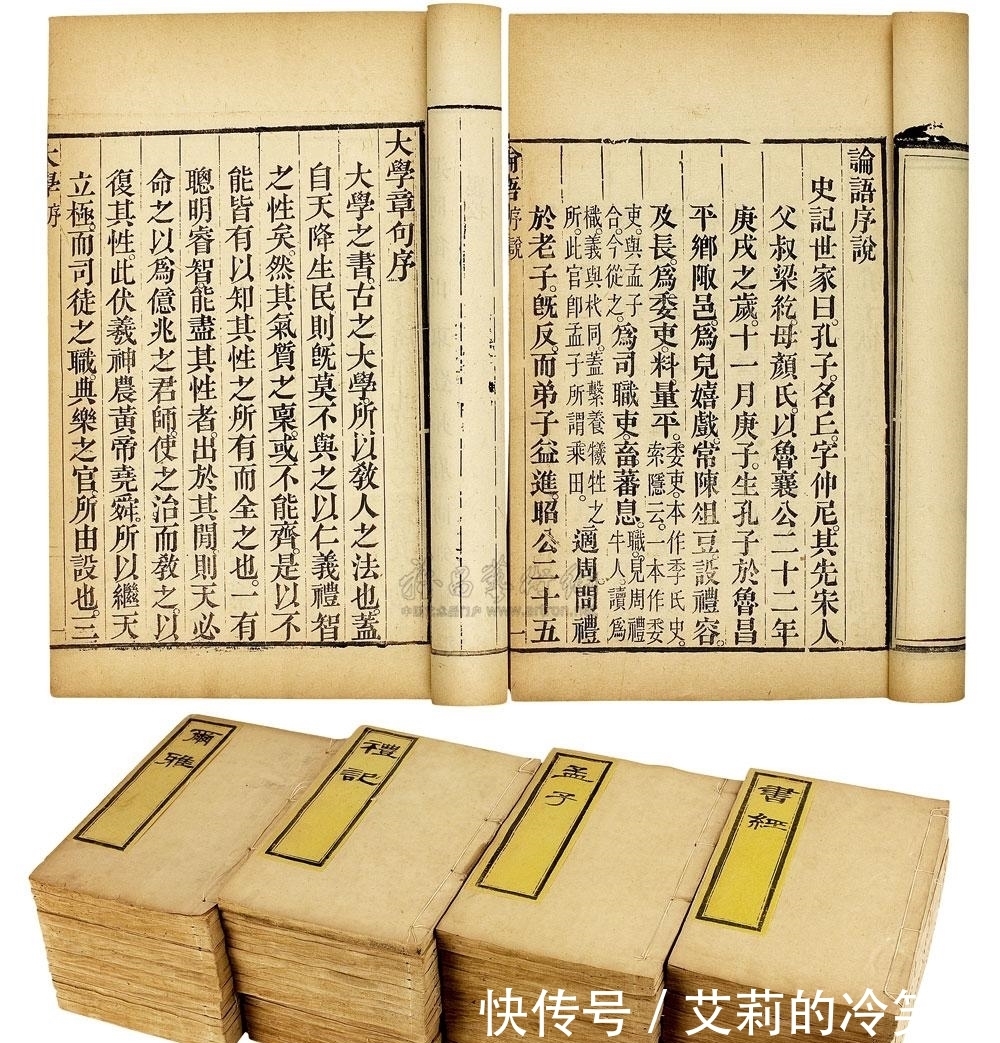 論語序說
史記世家曰。孔子。名丘。字仲尼。其先宋人。
父叔梁紇。母顏氏。以魯襄公二十二年
庚戌之歲。十一月庚子。生孔子於魯昌
平鄉陬邑。爲兒嬉戲。常陳俎豆。設禮容。
及長。爲委吏。料量平。委吏。本作季氏史。索隱云。一本作委
吏。與孟子合。今從之。爲司職吏。畜蕃息。職。見周禮牛人。讀爲
樴。義與杙同。蓋繫養犧牲之所。此官卽孟子所謂乘田。適周。問禮
於老子。旣反。而弟子益進。昭公二十五
論語序說
大學章句序
大學之書。古之大學。所以敎人之法也。蓋
自天降生民。則旣莫不與之以仁義禮智
之性矣。然其氣質之稟。或不能齊。是以不
能皆有以知其性之所有而全之也。一有
聰明睿智能盡其性者。出於其閒。則天必
命之以爲億兆之君師。使之治而敎之。以
復其性。此伏羲神農黃帝堯舜。所以繼天
立極。而司徒之職。典樂之官。所由設也。三
大學序
爾雅
禮記
孟子
書經
快传号/艾莉的冷笑